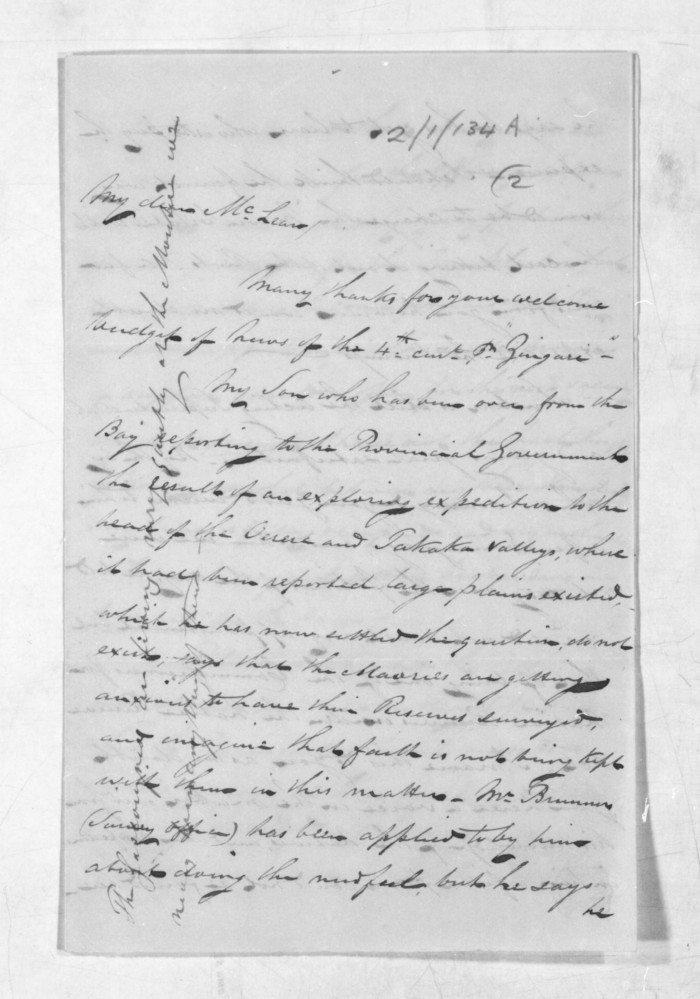 2/1/134 A
(2
My dear McLean,
Many thanks for your welcome
budget of news of the 4th curt. Pr "Zingari" –
My Son who has been over from the
Bay, reporting to the Provincial Government
the result of an exploring expedition to the
head of the Aorere and Takaka Valleys, where
it had been reported large plains existed,
which he has now settled the question, do not
exist, says that the Maories are getting
anxious to have their Reserves surveyed,
and imagine that faith is not being kept
with them in this matter – Mr Brunner
(Survey Office) has been applied to by him
about doing the needful, but he says
he
The are living very quietly at the Moutere